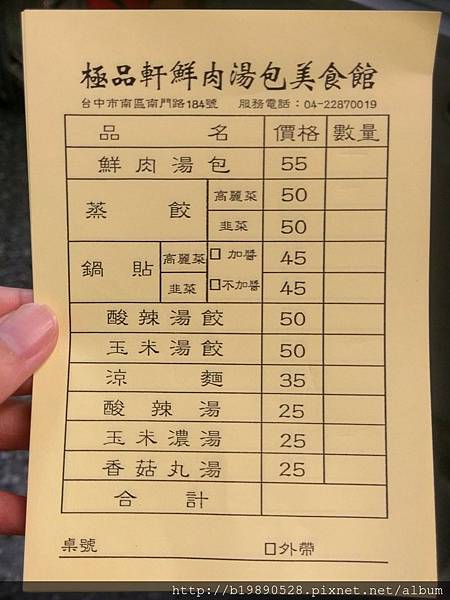 極品軒鮮肉湯包美食館
台中市南區南門路184號 服務電話：04-22870019
品 名 價格 數量
鮮肉湯包 55
蒸餃 高麗菜 50
韭菜 50
鍋貼 高麗菜 □ 加醬 45
韭菜 □不加醬 45
酸辣湯餃 50
玉米湯餃 50
涼麵 35
酸辣湯 25
玉米濃湯 25
香菇丸湯 25
合計
桌號 □外帶
http://b19890528.pixnet.net/album